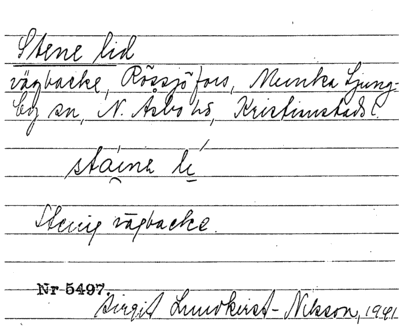 Stene lid
vägbacke, Rössjöfors, Munka Ljung-
by sn, N. Åsbo hd, Kristianstads l.
stáine lí
Stenig vägbacke.
Nr 5497.
Birgit Lundkvist-Nilsson, 1941